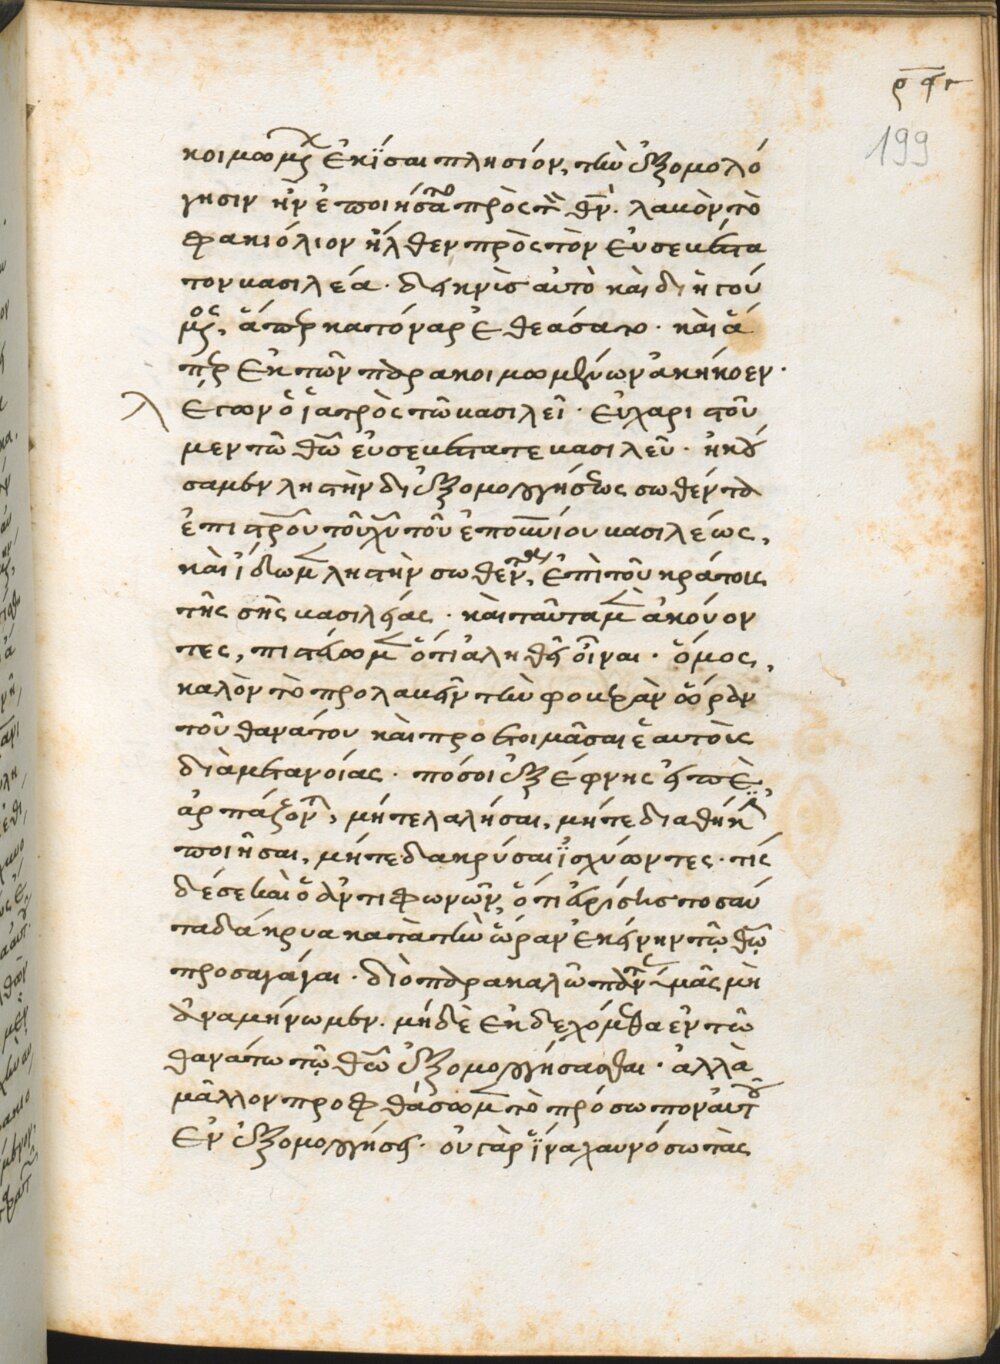 ρϟγ
199
κοιμωμ(εν) ἐκεῖσαι πλησίον, τὴν ἐξομολό
γησιν ἣν ἐποιήσατο πρὸς τὸν θν̄. λαβὸν τὸ
φακιόλιον ἦλθεν πρὸς τὸν εὐσεβέστα
τον βασιλέα. δεικνὺς αὐτὸ καὶ διηγού
μενος, ἅπερ κατόναρ ἐθεάσατο. καὶ ἅ
περ ἐκ τῶν παρακοιμωμένων ἀκήκοεν.
λέγων ὁ ἰατρὸς τῶ βασιλεῖ. εὐχαριστοῦ
μεν τῶ θῶ εὐσεβέστατε βασιλεῦ. ἠκού
σαμεν ληστὴν δι ἐξομολογήσεως σωθέντα
ἐπὶ σταυροῦ τοῦ χῦ τοῦ ἐπουρανίου βασιλέως,
καὶ ἴδωμεν ληστὴν σωθέντα, ἐπὶ τοῦ κράτους
τῆς σῆς βασιλείας. καὶ ταῦτα μὲν ἀκούον
τες, πιστεύωμεν ὅτι ἀληθῆ εἶναι. ὅμος,
καλὸν τὸ προλαβεῖν τὴν φοβερὰν ὥραν
τοῦ θανάτου καὶ προετοιμᾶσαι ἑαυτοὺς
διὰ μετανοίας. πόσοι ἐξ έφνης
ἁρπάζονται, μήτε λαλῆσαι, μήτε διαθήκην
ποιῆσαι, μήτε δακρύσαι ἰσχύωντες. τίς
δέ σε καὶ ὁ ἀντιφωνῶν, ὅτι τοσαύ
τα δάκρυα κατὰ τὴν ὥραν ἐκείνην τῶ θῶ
προσαγάγαι. διὸ παρακαλῶ πάντας ὑμᾶς μὴ
ἀναμένωμεν. μηδὲ ἐκδεχόμεθα ἐν τῶ
θανάτω τῶ θῶ ἐξομολογήσασθαι. ἀλλὰ
μᾶλλον προφθάσωμεν τὸ πρόσωπον αὐτοῦ
ἐν ἐξομολογήσει. οὐ γὰρ ἵνα